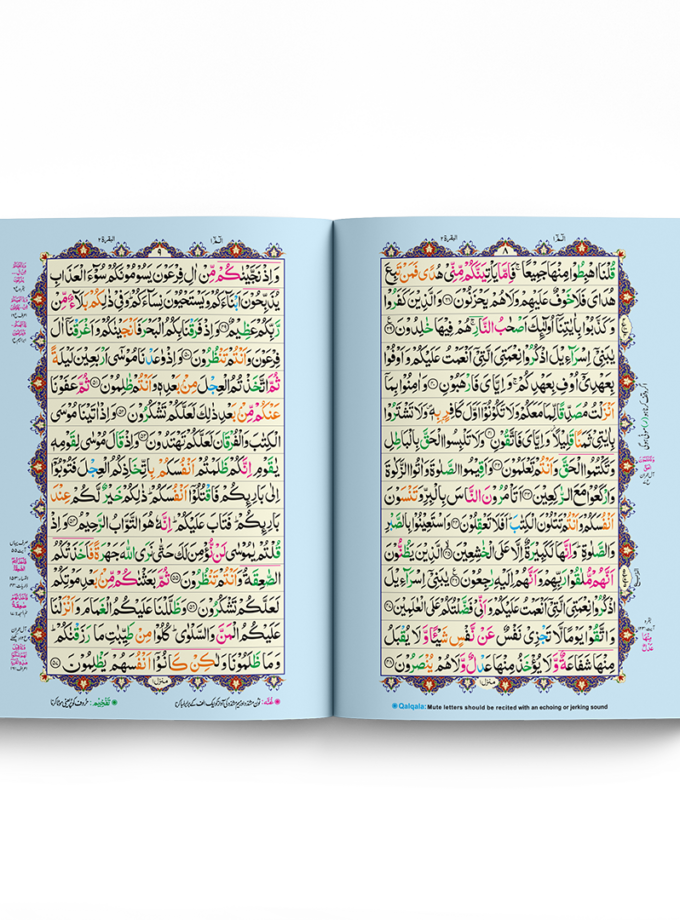 البقرة ٢
٨
الٓمّٓ ١
قُلْنَا اهْبِطُوْا مِنْهَا جَمِيْعًا ۚ فَاِمَّا يَاْتِيَنَّكُمْ مِّنِّىْ هُدًى فَمَنْ تَبِعَ
هُدَاىَ فَلَا خَوْفٌ عَلَيْهِمْ وَلَا هُمْ يَحْزَنُوْنَ ﴿۳۸﴾ وَالَّذِيْنَ كَفَرُوْا
وَكَذَّبُوْا بِاٰيٰتِنَآ اُولٰٓئِكَ اَصْحٰبُ النَّارِ ۚ هُمْ فِيْهَا خٰلِدُوْنَ ﴿۳۹﴾
يٰبَنِىْٓ اِسْرَآءِيْلَ اذْكُرُوْا نِعْمَتِىَ الَّتِىْٓ اَنْعَمْتُ عَلَيْكُمْ وَاَوْفُوْا
بِعَهْدِىْٓ اُوْفِ بِعَهْدِكُمْ ۚ وَاِيَّاىَ فَارْهَبُوْنِ ﴿۴۰﴾ وَاٰمِنُوْا بِمَآ
اَنْزَلْتُ مُصَدِّقًا لِّمَا مَعَكُمْ وَلَا تَكُوْنُوْٓا اَوَّلَ كَافِرٍۢ بِهٖ ۪ وَلَا تَشْتَرُوْا
بِاٰيٰتِىْ ثَمَنًا قَلِيْلًا ۫ وَّاِيَّاىَ فَاتَّقُوْنِ ﴿۴۱﴾ وَلَا تَلْبِسُوا الْحَقَّ بِالْبَاطِلِ
وَتَكْتُمُوا الْحَقَّ وَاَنْتُمْ تَعْلَمُوْنَ ﴿۴۲﴾ وَاَقِيْمُوا الصَّلٰوةَ وَاٰتُوا الزَّكٰوةَ
وَارْكَعُوْا مَعَ الرّٰكِعِيْنَ ﴿۴۳﴾ اَتَاْمُرُوْنَ النَّاسَ بِالْبِرِّ وَتَنْسَوْنَ
اَنْفُسَكُمْ وَاَنْتُمْ تَتْلُوْنَ الْكِتٰبَ ؕ اَفَلَا تَعْقِلُوْنَ ﴿۴۴﴾ وَاسْتَعِيْنُوْا بِالصَّبْرِ
وَالصَّلٰوةِ ؕ وَاِنَّهَا لَكَبِيْرَةٌ اِلَّا عَلَى الْخٰشِعِيْنَ ﴿۴۵﴾ الَّذِيْنَ يَظُنُّوْنَ
اَنَّهُمْ مُّلٰقُوْا رَبِّهِمْ وَاَنَّهُمْ اِلَيْهِ رٰجِعُوْنَ ﴿۴۶﴾ يٰبَنِىْٓ اِسْرَآءِيْلَ
اذْكُرُوْا نِعْمَتِىَ الَّتِىْٓ اَنْعَمْتُ عَلَيْكُمْ وَاَنِّىْ فَضَّلْتُكُمْ عَلَى الْعٰلَمِيْنَ ﴿۴۷﴾
وَاتَّقُوْا يَوْمًا لَّا تَجْزِىْ نَفْسٌ عَنْ نَّفْسٍ شَيْـًٔا وَّلَا يُقْبَلُ
مِنْهَا شَفَاعَةٌ وَّلَا يُؤْخَذُ مِنْهَا عَدْلٌ وَّلَا هُمْ يُنْصَرُوْنَ ﴿۴۸﴾
منزل ١
Qalqala: Mute letters should be recited with an echoing or jerking sound
البقرة ٢
٩
الٓمّٓ ١
وَاِذْ نَجَّيْنٰكُمْ مِّنْ اٰلِ فِرْعَوْنَ يَسُوْمُوْنَكُمْ سُوْٓءَ الْعَذَابِ
يُذَبِّحُوْنَ اَبْنَآءَكُمْ وَيَسْتَحْيُوْنَ نِسَآءَكُمْ ؕ وَفِىْ ذٰلِكُمْ بَلَآءٌ مِّنْ
رَّبِّكُمْ عَظِيْمٌ ﴿۴۹﴾ وَاِذْ فَرَقْنَا بِكُمُ الْبَحْرَ فَاَنْجَيْنٰكُمْ وَاَغْرَقْنَآ اٰلَ
فِرْعَوْنَ وَاَنْتُمْ تَنْظُرُوْنَ ﴿۵۰﴾ وَاِذْ وٰعَدْنَا مُوْسٰٓى اَرْبَعِيْنَ لَيْلَةً
ثُمَّ اتَّخَذْتُمُ الْعِجْلَ مِنْۢ بَعْدِهٖ وَاَنْتُمْ ظٰلِمُوْنَ ﴿۵۱﴾ ثُمَّ عَفَوْنَا
عَنْكُمْ مِّنْۢ بَعْدِ ذٰلِكَ لَعَلَّكُمْ تَشْكُرُوْنَ ﴿۵۲﴾ وَاِذْ اٰتَيْنَا مُوْسَى
الْكِتٰبَ وَالْفُرْقَانَ لَعَلَّكُمْ تَهْتَدُوْنَ ﴿۵۳﴾ وَاِذْ قَالَ مُوْسٰى لِقَوْمِهٖ
يٰقَوْمِ اِنَّكُمْ ظَلَمْتُمْ اَنْفُسَكُمْ بِاتِّخَاذِكُمُ الْعِجْلَ فَتُوْبُوْٓا
اِلٰى بَارِىِٕكُمْ فَاقْتُلُوْٓا اَنْفُسَكُمْ ؕ ذٰلِكُمْ خَيْرٌ لَّكُمْ عِنْدَ
بَارِىِٕكُمْ ؕ فَتَابَ عَلَيْكُمْ ؕ اِنَّهٗ هُوَ التَّوَّابُ الرَّحِيْمُ ﴿۵۴﴾ وَاِذْ
قُلْتُمْ يٰمُوْسٰى لَنْ نُّؤْمِنَ لَكَ حَتّٰى نَرَى اللّٰهَ جَهْرَةً فَاَخَذَتْكُمُ
الصّٰعِقَةُ وَاَنْتُمْ تَنْظُرُوْنَ ﴿۵۵﴾ ثُمَّ بَعَثْنٰكُمْ مِّنْۢ بَعْدِ مَوْتِكُمْ
لَعَلَّكُمْ تَشْكُرُوْنَ ﴿۵۶﴾ وَظَلَّلْنَا عَلَيْكُمُ الْغَمَامَ وَاَنْزَلْنَا
عَلَيْكُمُ الْمَنَّ وَالسَّلْوٰى ؕ كُلُوْا مِنْ طَيِّبٰتِ مَا رَزَقْنٰكُمْ ؕ
وَمَا ظَلَمُوْنَا وَلٰكِنْ كَانُوْٓا اَنْفُسَهُمْ يَظْلِمُوْنَ ﴿۵۷﴾
منزل ١